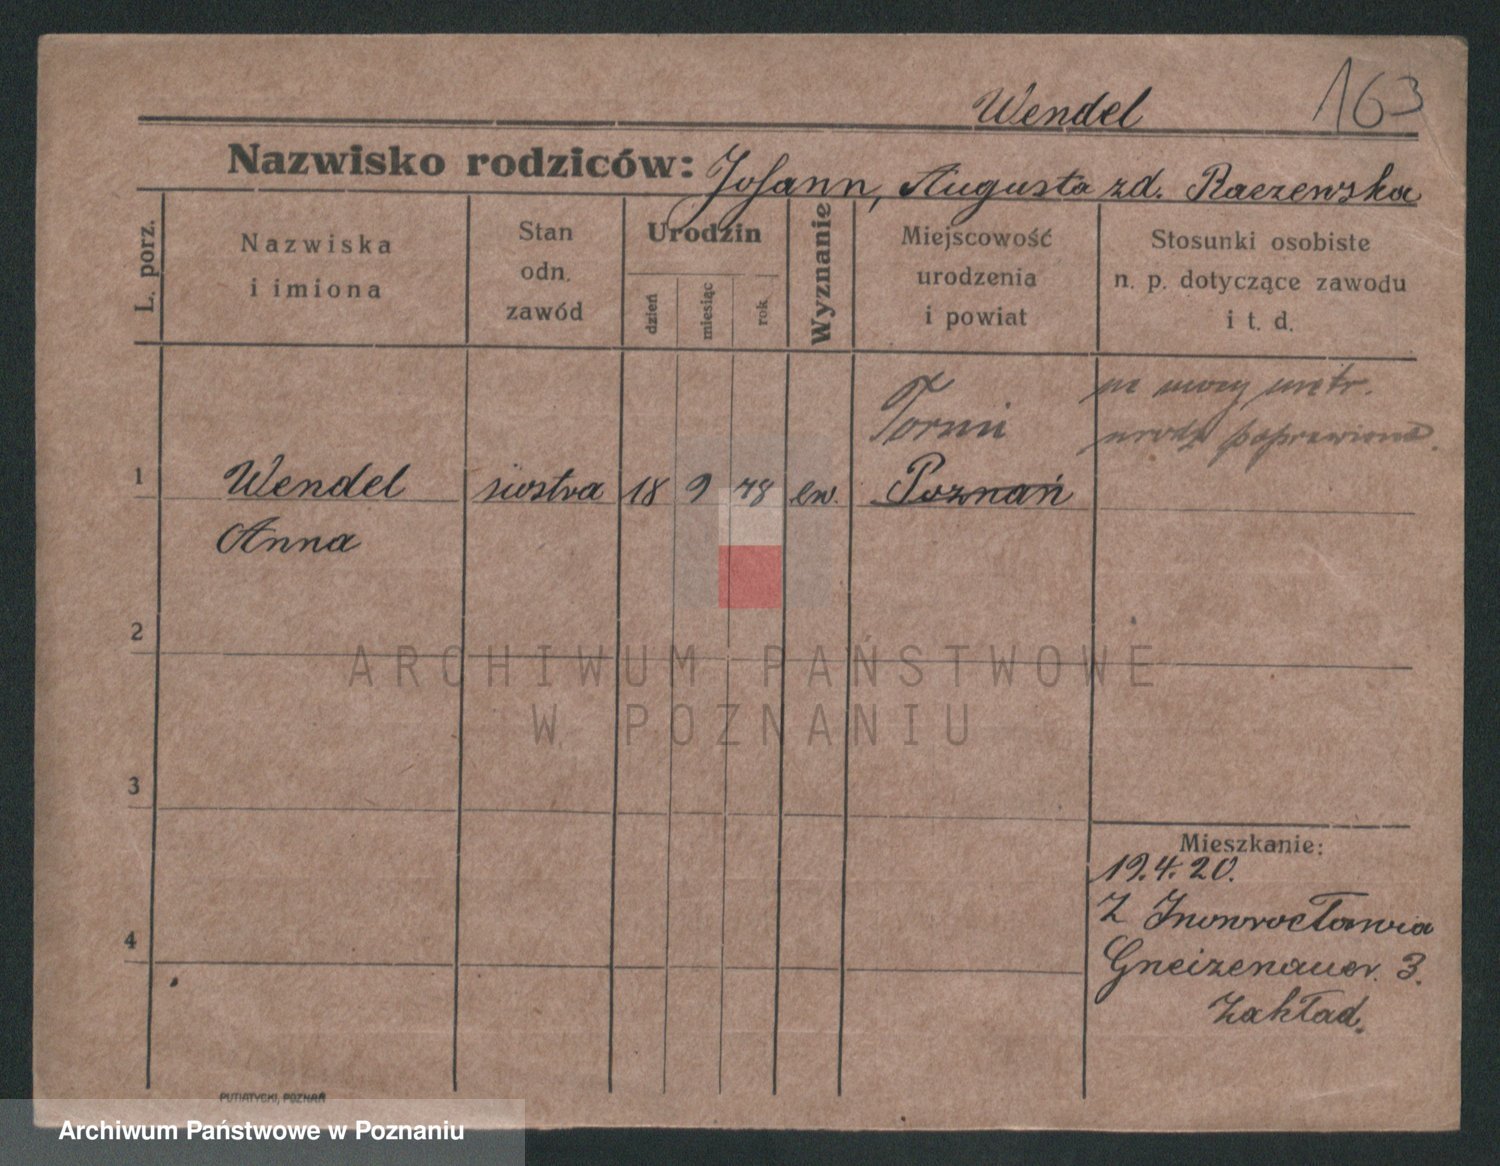 163
Wendel
Nazwisko rodziców: Johann, Augusta zd. Raczewska
L. porz.
Nazwiska
i imiona
Stan
odn.
zawód
Urodzin
dzień
miesiąc
rok.
Wyznanie
Miejscowość
urodzenia
i powiat
Stosunki osobiste
n. p. dotyczące zawodu
i t. d.
na mocy metr.
urodz poprawiono.
Toruń
1 Wendel siostra 18 9 78 ew. Poznań
Anna
2
ARCHIWUM PAŃSTWOWE
W POZNANIU
3
Mieszkanie:
19.4.20.
Z Inowrocławia
Gneizenauer. 3.
Zakład.
4
PUTIATYCKI, POZNAŃ
Archiwum Państwowe w Poznaniu